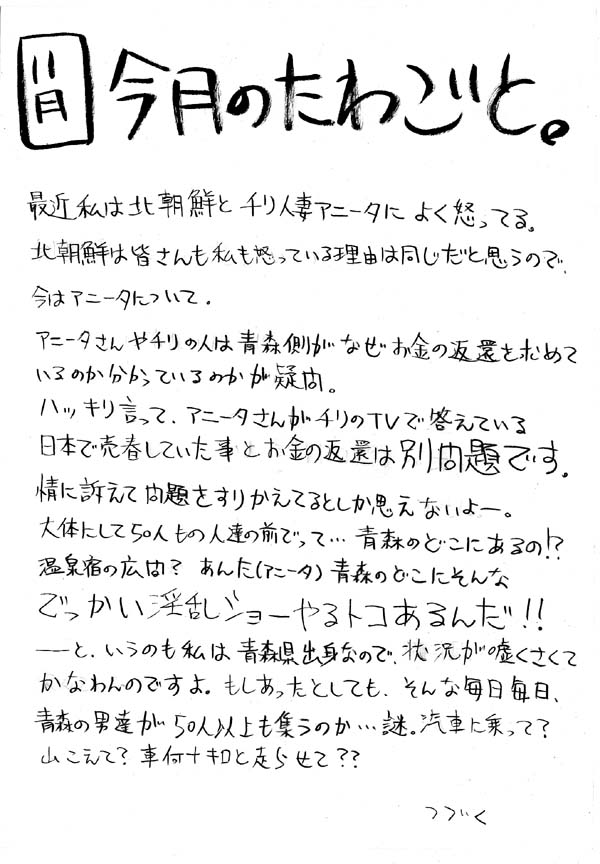 11月 今月のたわごと。
最近私は北朝鮮とチリ人妻アニータに よく怒ってる。
北朝鮮は皆さんも私も怒っている理由は同じだと思うので、
今はアニータについて。
アニータさんやチリの人は青森側がなぜお金の返還を求めて
いるのか分かっているのかが疑問。
ハッキリ言って、アニータさんがチリのTVで答えている
日本で売春していた事とお金の返還は別問題です。
情に訴えて問題をすりかえてるとしか思えないよー。
大体にして50人もの人達の前でって… 青森のどこにあるの!?
温泉宿の広間? あんた(アニータ) 青森のどこにそんな
でっかい淫乱ショーやるトコあるんだ!!
——と、いうのも私は青森県出身なので、状況が嘘くさくて
かなわんのですよ。もしあったとしても、そんな毎日毎日、
青森の男達が50人以上も集うのか…謎。汽車に乗って?
山こえて? 車何十キロと走らせて??
つづく